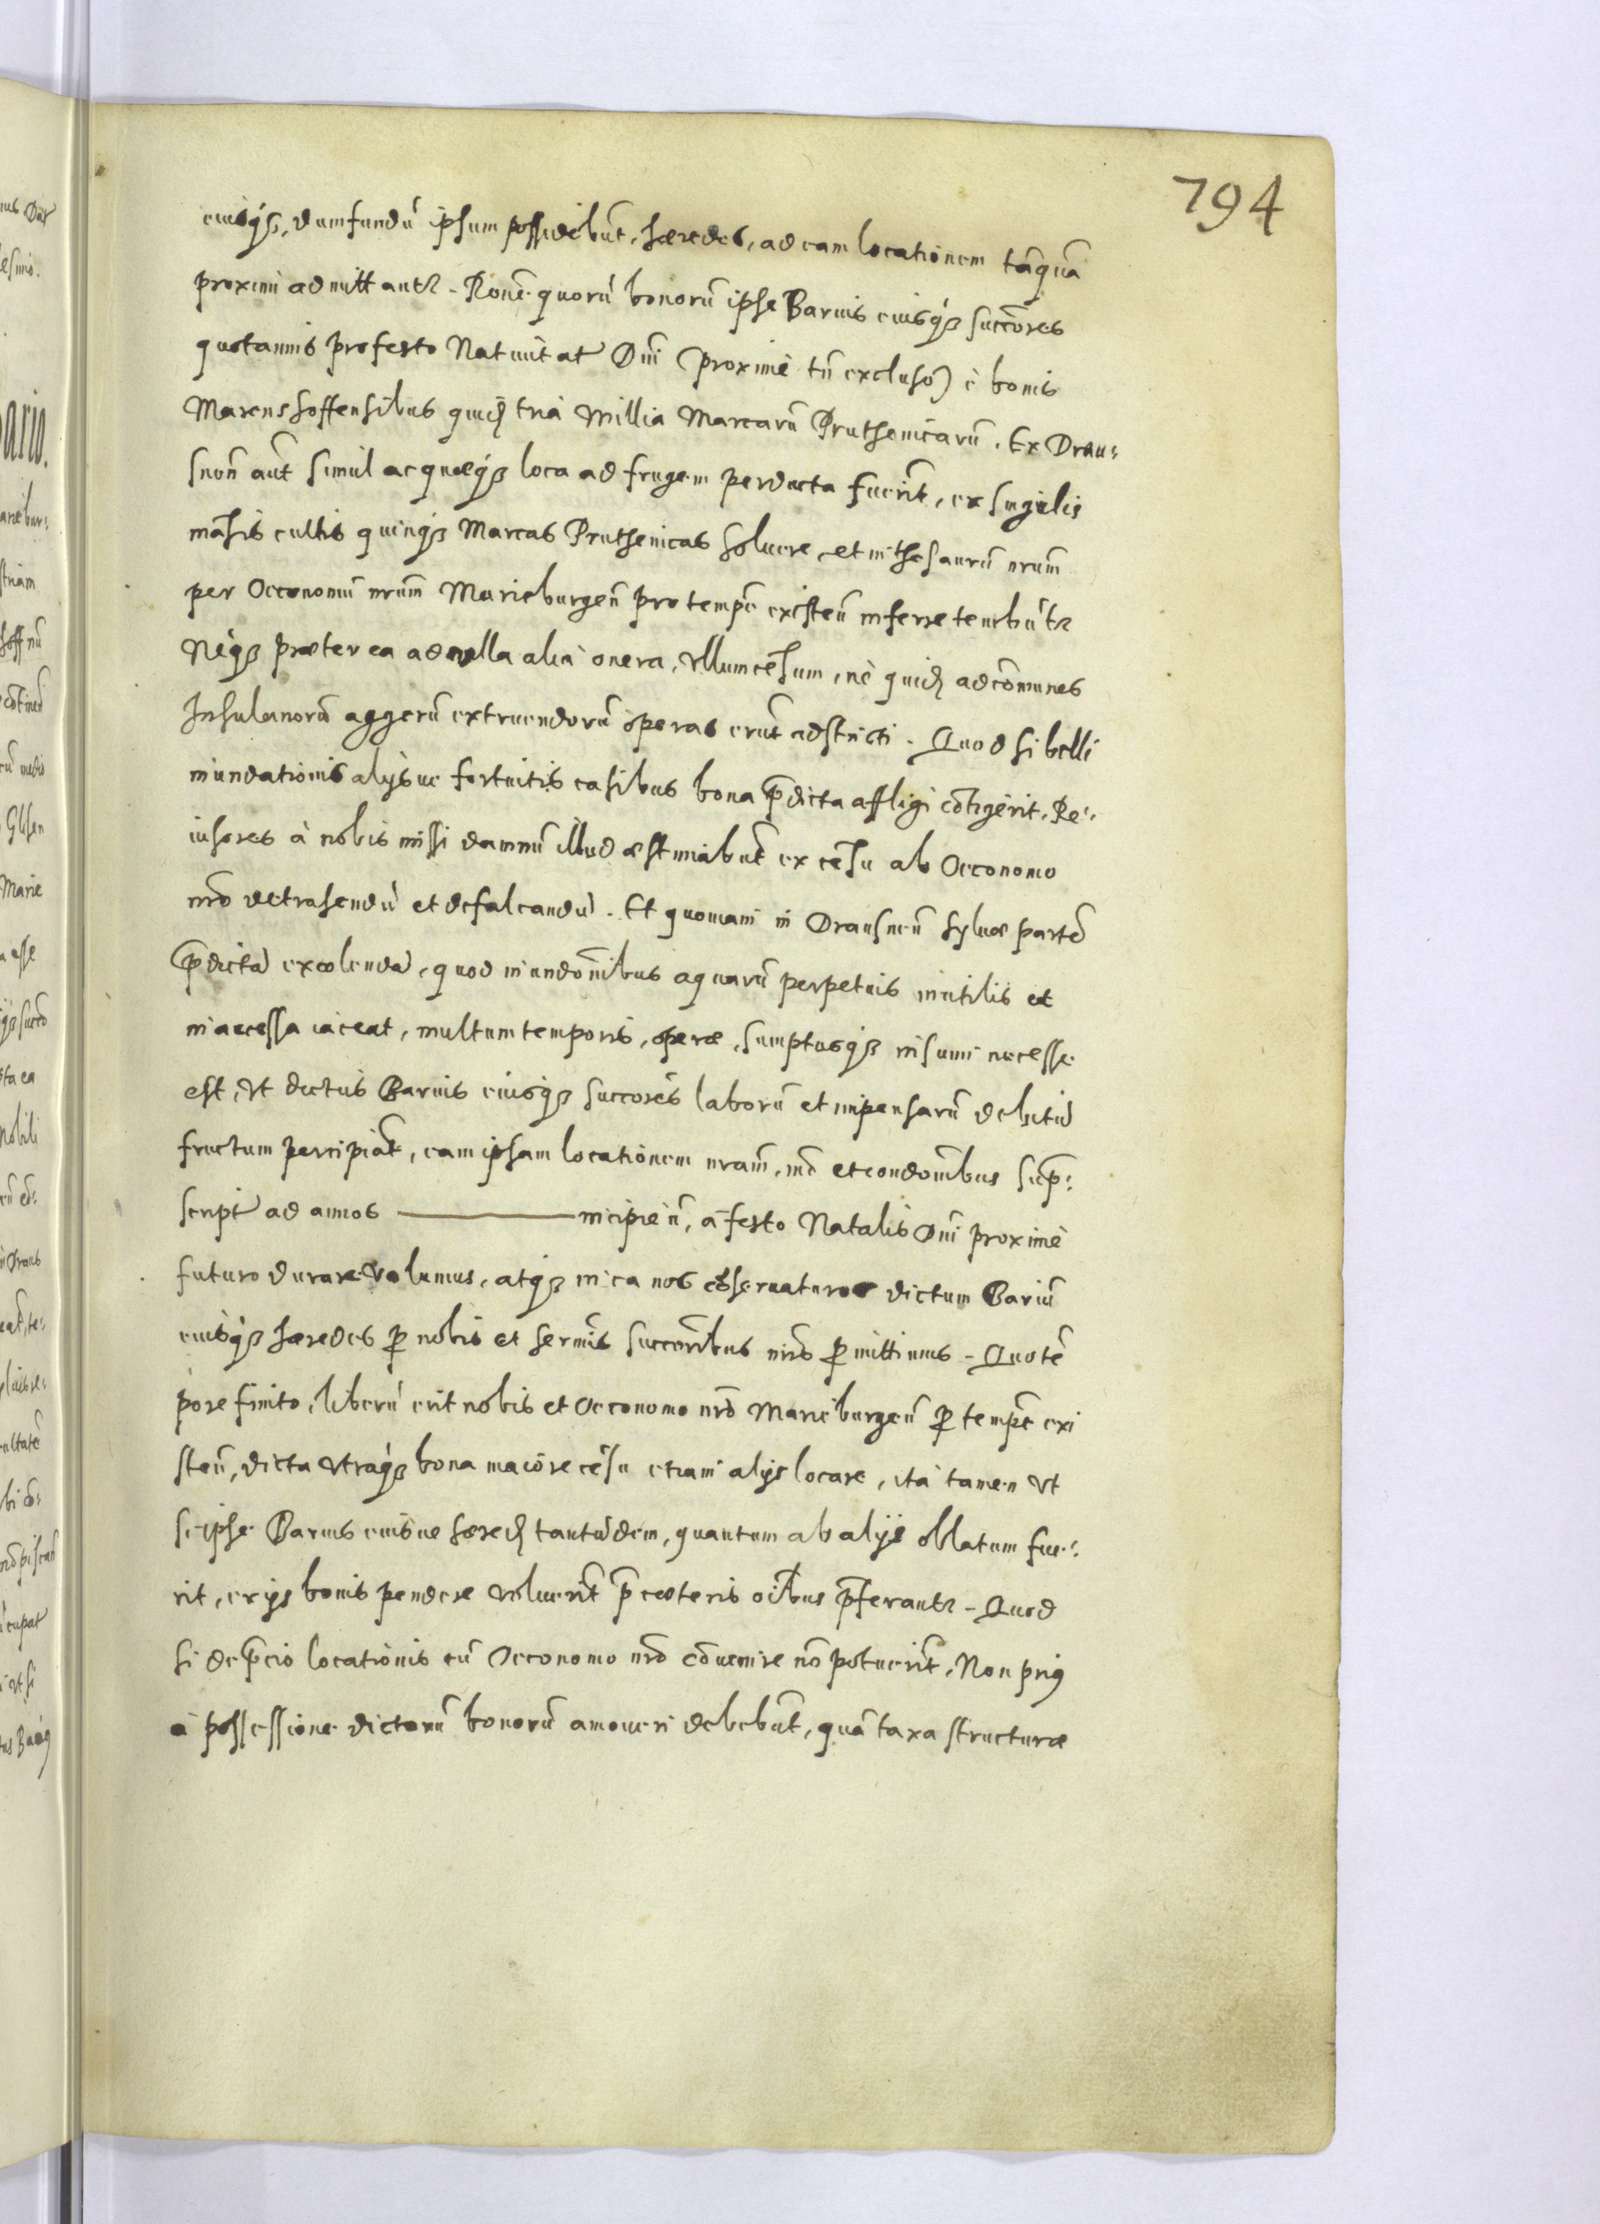 794
eiusq3, dum fundũ ipsum possidebũt, hæredes, ad eam locationem tãquã
proximi admittantr. Rone quorũ bonorum ipse Barius eiusq3 succores
quotannis pro festo Natiuitat Dni (proximè tñ excluso) è bonis
Marenshoffensibus quid tria Millia Marcarũ Pruthenicarũ. Ex Drau:
snoñ aũt simul ac quæq3 loca ad frugem perducta fuerit, ex singulis
mãsis cultis quinq3 Marcas Pruthenicas soluere, et in thesaurũ nrum
per Oeconomũ nrum Marieburgeñ pro tempe existeñ inferre tenebũtr
Neq3 præterea ad vlla alia onera, vllum cẽsum, ne quid ad cõmunes
Insulanorũ aggerũ extruendorũ operas erũt adstricti. Quod si belli
inundationis alijsue fortuitis casibus bona p̃dicta affligi cõtigerit. Re:
uisores à nobis missi damnũ illud æstimabũt ex cẽsu ab Oeconomo
nrõ detrahendũ et defalcandũ. Et quoniam in Drausneñ syluæ partẽ
p̃dictã excolendã, quod inundonibus aquarũ perpetuis inutilis et
inaccessa iaceat, multum temporis, operæ, sumptusq3 insumi necesse
est, vt dictus Barius eiusq3 succores laborũ et impensarũ debitũ
fructum percipiãt, eam ipsam locationem nram, mõ et condonibus sup̃:
script ad annos ——— incipieñ, a festo Natalis Dni proximè
futuro durare volumus, atq3 in ea nos obseruaturos dictum Bariũ
eiusq3 hæredes p nobis et sermis succoribus nris pmittimus. Quo tẽ
pore finito, liberũ erit nobis et Oeconomo nrõ Marieburgeñ p tempe exi
steñ, dicta vtraq3 bona maiore cẽsu etiam alijs locare, ita tamen vt
si ipse Barius eiusue hæred tantũdem, quantum ab alijs oblatum fue:
rit, ex ijs bonis pendere voluerit p̃ cæteris oĩbus p̃ferantr. Quod
si de p̃cio locationis cũ Oeconomo nrõ cõuenire nõ potuerit, Non prius
à possessione dictorũ bonorũ amoueri debebũt, quã taxa structuræ